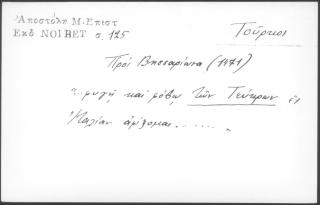 Ἀποστόλη Μ. Ἐπιστ
Ἐκδ NOIRET σ. 125
Τοῦρκοι
Πρὸς Βησσαρίωνα (1471)
"... φυγῇ καὶ φόβῳ τῶν Τεύκρων ἐς
Ἰταλίαν ἀφίξομαι..... "